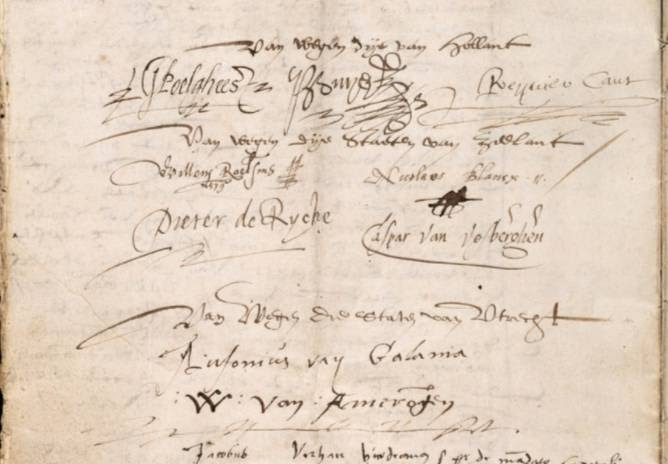 Van wegen dye van Hollant
G Poelgheest P Buys Reynier Cant
Van wegen dye Staeten van Zeelant
Willem Roelsius Nicolaes Blancx
Pieter de Rycke Caspar van vosberghen
Van wegen die Staten van Utrecht
Antonius van Galama
W: van Amerongen
Jacobus Verhaer